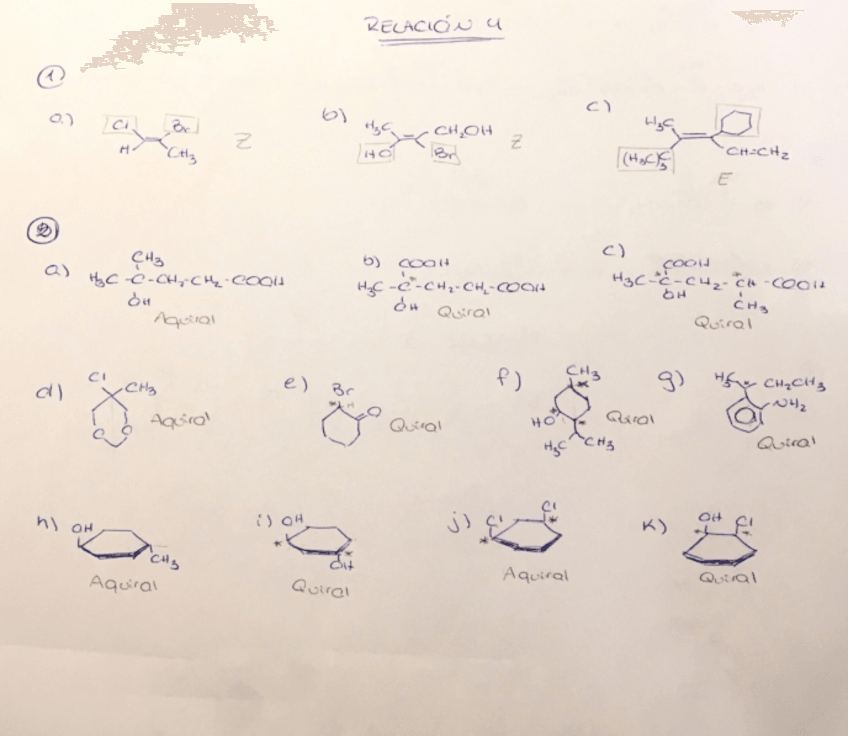 RELACIÓN 4
①
a) Cl Br Z
H CH₃
b) H₃C CH₂OH Z
HO Br
c) H₃C
(H₃C)₃C CH=CH₂
E
②
a) CH₃
H₃C-C-CH₂-CH₂-COOH
OH
Aquiral
b) COOH
H₃C-C*-CH₂-CH₂-COOH
OH Quiral
c) COOH
H₃C-*C-CH₂-*CH-COOH
OH CH₃
Quiral
d) Cl CH₃
O O
Aquiral
e) Br
* H
O
Quiral
f) CH₃
*
HO * *
H₃C CH₃
Quiral
g) H₃C * CH₂CH₃
NH₂
Quiral
h) OH
CH₃
Aquiral
i) OH
* *
OH
Quiral
j) Cl Cl
* *
Aquiral
k) OH Cl
* *
Quiral